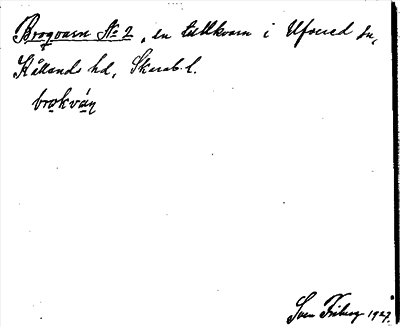 Broqvarn № 2, en tullkvarn i Ufvered sn,
Kållands hd, Skarab. l.
brokván
Sven Friberg 1927.